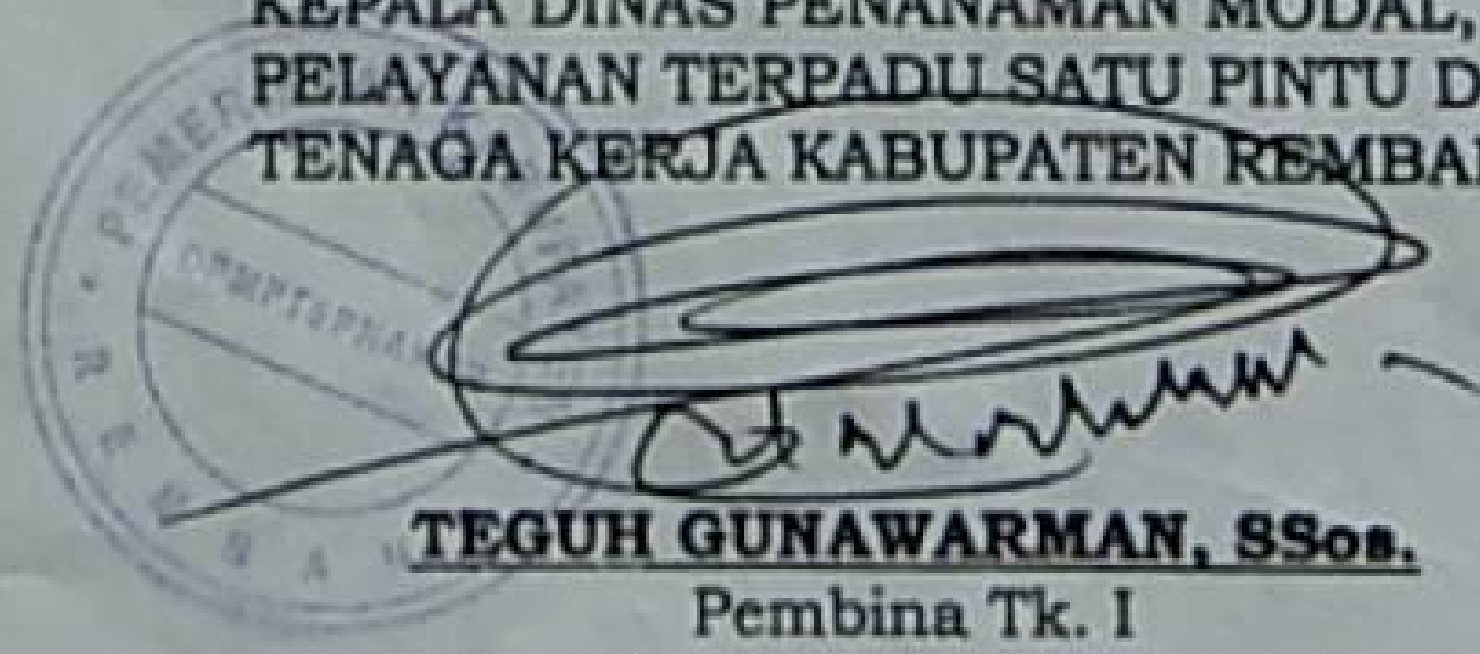 KEPALA DINAS PENANAMAN MODAL,
PELAYANAN TERPADU SATU PINTU D
TENAGA KERJA KABUPATEN REMBA
TEGUH GUNAWARMAN, SSos.
Pembina Tk. I